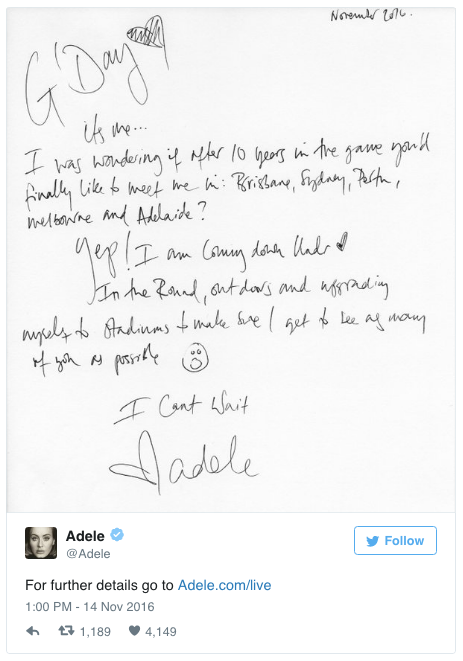 November 2016.
G'Day
its me...
I was wondering if after 10 years in the game you'd
finally like to meet me in: Brisbane, Sydney, Perth,
melbourne and Adelaide?
Yep! I am Coming down Under
In the Round, outdoors and upgrading
myself to Stadiums to make sure I get to see as many
of you as possible
I Cant Wait
adele
Adele
@Adele
Follow
For further details go to Adele.com/live
1:00 PM - 14 Nov 2016
1,189
4,149